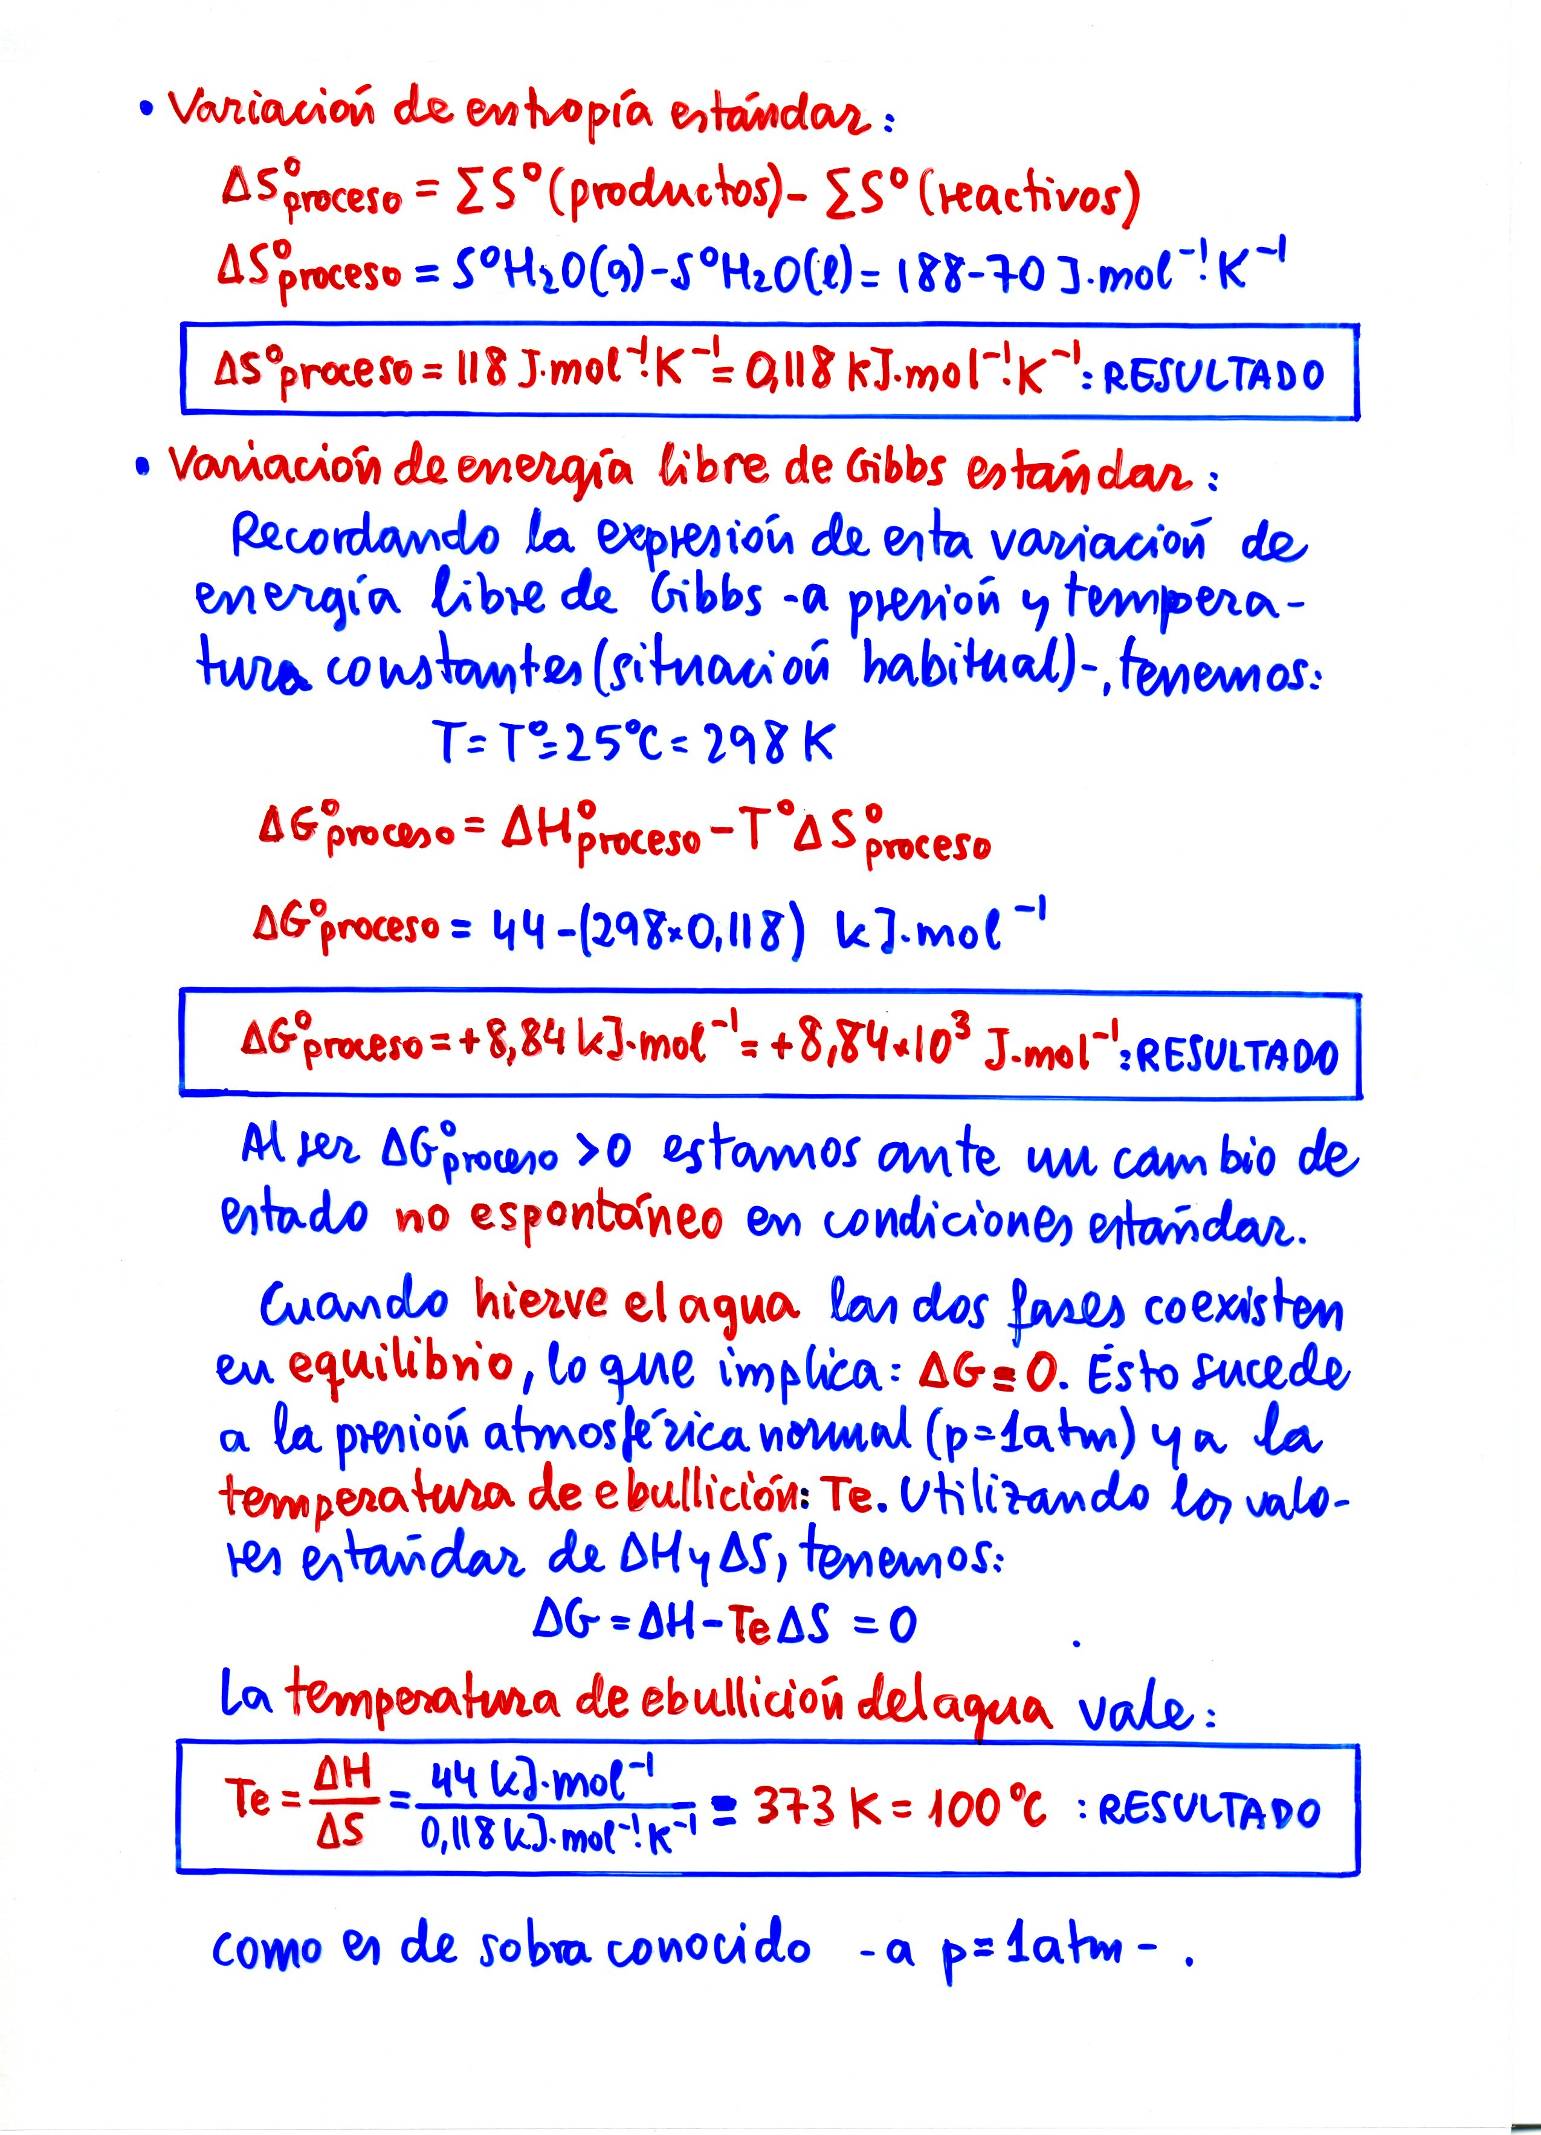 • Variación de entropía estándar:
ΔS°proceso = ΣS°(productos) - ΣS°(reactivos)
ΔS°proceso = S°H₂O(g) - S°H₂O(l) = 188-70 J·mol⁻¹·K⁻¹
ΔS°proceso = 118 J·mol⁻¹·K⁻¹ = 0,118 kJ·mol⁻¹·K⁻¹: RESULTADO
• Variación de energía libre de Gibbs estándar:
Recordando la expresión de esta variación de
energía libre de Gibbs -a presión y tempera-
tura constantes (situación habitual)-, tenemos:
T = T° = 25°C = 298 K
ΔG°proceso = ΔH°proceso - T°ΔS°proceso
ΔG°proceso = 44 - (298×0,118) kJ·mol⁻¹
ΔG°proceso = +8,84 kJ·mol⁻¹ = +8,84×10³ J·mol⁻¹: RESULTADO
Al ser ΔG°proceso > 0 estamos ante un cambio de
estado no espontáneo en condiciones estándar.
Cuando hierve el agua las dos fases coexisten
en equilibrio, lo que implica: ΔG = 0. Esto sucede
a la presión atmosférica normal (p=1atm) y a la
temperatura de ebullición: Te. Utilizando los valo-
res estándar de ΔH y ΔS, tenemos:
ΔG = ΔH - TeΔS = 0
La temperatura de ebullición del agua vale:
Te = ΔH/ΔS = 44 kJ·mol⁻¹/0,118 kJ·mol⁻¹·K⁻¹ = 373 K = 100 °C : RESULTADO
como es de sobra conocido -a p=1atm-.